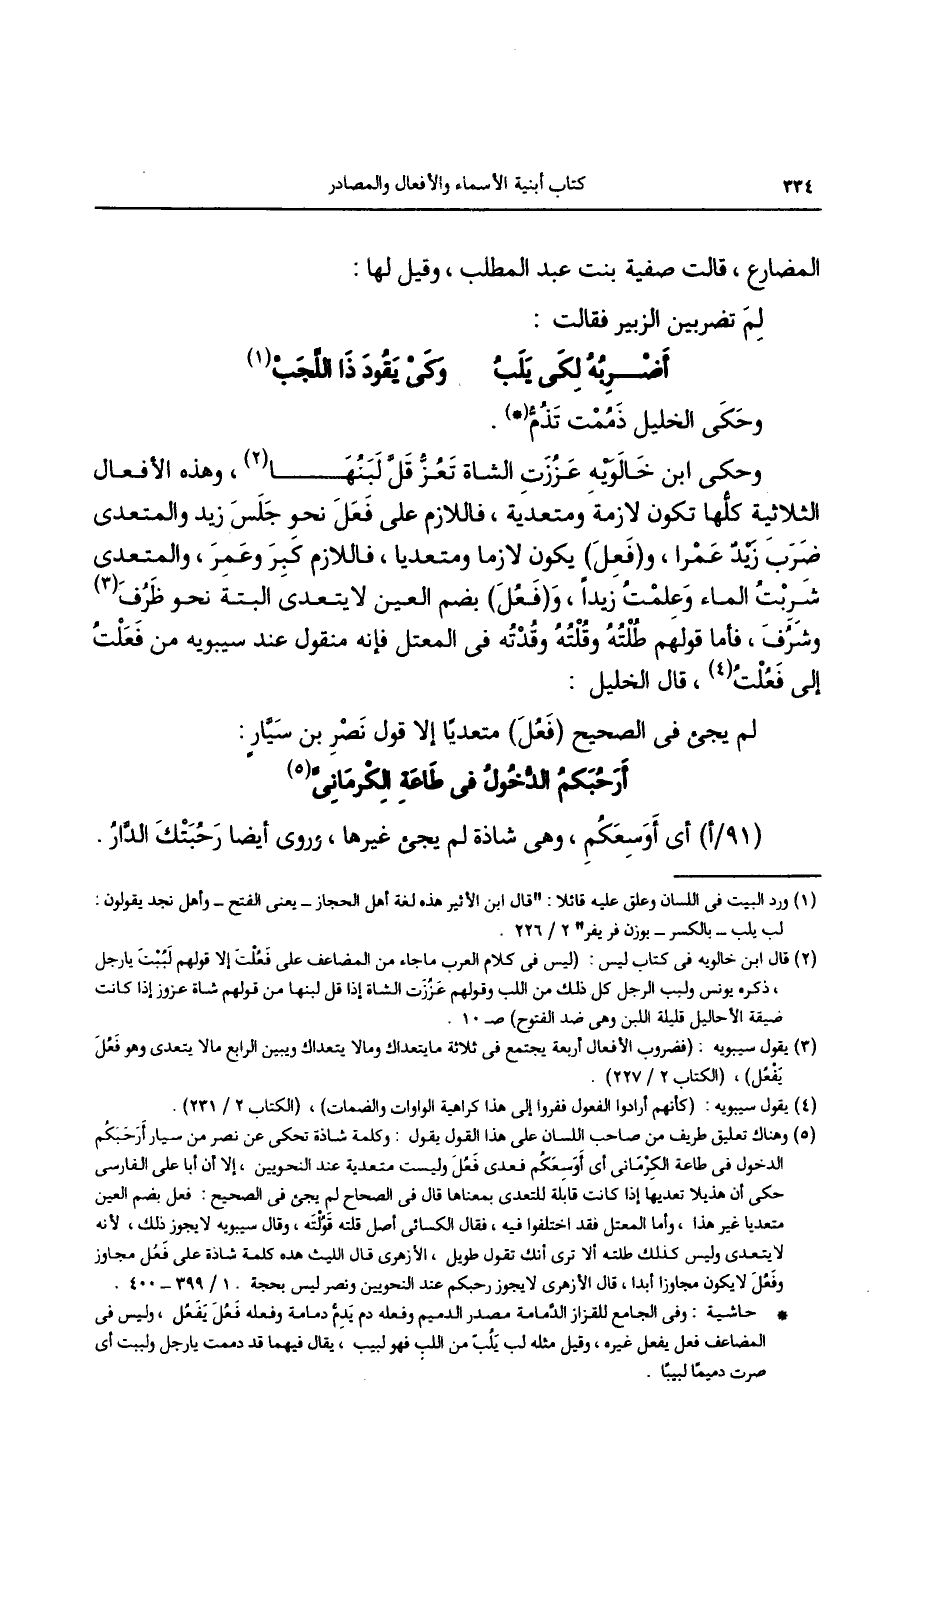 ٣٣٤ كتاب أبنية الأسماء والأفعال والمصادر
المضارع ، قالت صفية بنت عبد المطلب ، وقيل لها :
لِمَ تضربين الزبير فقالت :
أَضْـــرِبُهُ لِكَى يَلَبُ وَكَىْ يَقُودَ ذَا اللَّجَبْ(١)
وحَكَى الخليل ذَمُمْت تَذُمُّ(*) .
وحكى ابن خَالَوَيْه عَزُزَت الشاة تَعُزُّ قَلَّ لَبَنُهَـــــــا(٢) ، وهذه الأفعال
الثلاثية كلُّها تكون لازمة ومتعدية ، فاللازم على فَعَلَ نحو جَلَسَ زيد والمتعدى
ضَرَبَ زَيْدٌ عَمْرا ، و(فَعِلَ) يكون لازما ومتعديا ، فاللازم كَبِرَ وعَمِرَ ، والمتعدى
شَرِبْتُ الماء وَعَلِمْتُ زيداً ، وَ(فَعُلَ) بضم العين لايتعدى البتة نحو ظَرُفَ(٣)
وشَرُفَ ، فأما قولهم طُلْتُهُ وقُلْتُهُ وقُدْتُه فى المعتل فإنه منقول عند سيبويه من فَعَلْتُ
إلى فَعُلْتُ(٤) ، قال الخليل :
لم يجئ فى الصحيح (فَعُلَ) متعديًا إلا قول نَصْرِ بن سَيَّارٍ :
أَرَحُبَكمُ الدُّخُولُ فى طَاعَةِ الِكْرمَانِىِّ(٥)
(٩١/أ) أى أَوَسِعَكُم ، وهى شاذة لم يجئ غيرها ، وروى أيضا رَحُبَتْكَ الدَّارُ .
(١) ورد البيت فى اللسان وعلق عليه قائلا : "قال ابن الأثير هذه لغة أهل الحجاز ـ يعنى الفتح ـ وأهل نجد يقولون :
لب يلب ـ بالكسر ـ بوزن فر يفر" ٢ / ٢٢٦ .
(٢) قال ابن خالويه فى كتاب ليس : (ليس فى كلام العرب ماجاء من المضاعف على فَعُلْتَ إلا قولهم لَبُبْتَ يارجل
، ذكره يونس ولبب الرجل كل ذلك من اللب وقولهم عَزُزَت الشاة إذا قل لبنها من قولهم شاة عزوز إذا كانت
ضيقة الأحاليل قليلة اللبن وهى ضد الفتوح) صـ ١٠ .
(٣) يقول سيبويه : (فضروب الأفعال أربعة يجتمع فى ثلاثة مايتعداك ومالا يتعداك ويبين الرابع مالا يتعدى وهو فَعُلَ
يَفْعُل) ، (الكتاب ٢ / ٢٢٧) .
(٤) يقول سيبويه : (كأنهم أرادوا الفعول ففروا إلى هذا كراهية الواوات والضمات) ، (الكتاب ٢ / ٢٣١) .
(٥) وهناك تعليق طريف من صاحب اللسان على هذا القول يقول : وكلمة شاذة تحكى عن نصر من سيار أَرَحُبَكُم
الدخول فى طاعة الكِرْمَانى أى أَوَسِعَكُم فعدى فَعُلَ وليست متعدية عند النحويين ، إلا أن أبا على الفارسى
حكى أن هذيلا تعديها إذا كانت قابلة للتعدى بمعناها قال فى الصحاح لم يجئ فى الصحيح : فعل بضم العين
متعديا غير هذا ، وأما المعتل فقد اختلفوا فيه ، فقال الكسائى أصل قلته قَوُلْته ، وقال سيبويه لايجوز ذلك ، لأنه
لايتعدى وليس كذلك طلته ألا ترى أنك تقول طويل ، الأزهرى قال الليث هده كلمة شاذة على فَعُل مجاوز
وفَعُلَ لايكون مجاوزا أبدا ، قال الأزهرى لايجوز رحبكم عند النحويين ونصر ليس بحجة . ١ / ٣٩٩ ـ ٤٠٠ .
* حاشية : وفى الجامع للقزاز الدَّمامة مصدر الدميم وفعله دم يَدِمُّ دمامة وفعله فَعُلَ يَفْعُل ، وليس فى
المضاعف فعل يفعل غيره ، وقيل مثله لب يَلُبّ من اللب فهو لبيب ، يقال فيهما قد دممت يارجل ولببت أى
صرت دميمًا لبيبًا .